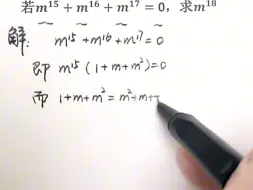 若m¹⁵ + m¹⁶ + m¹⁷ = 0，求m¹⁸
解: m¹⁵+m¹⁶+m¹⁷=0
即 m¹⁵(1+m+m²)=0
而 1+m+m²=m²+m+